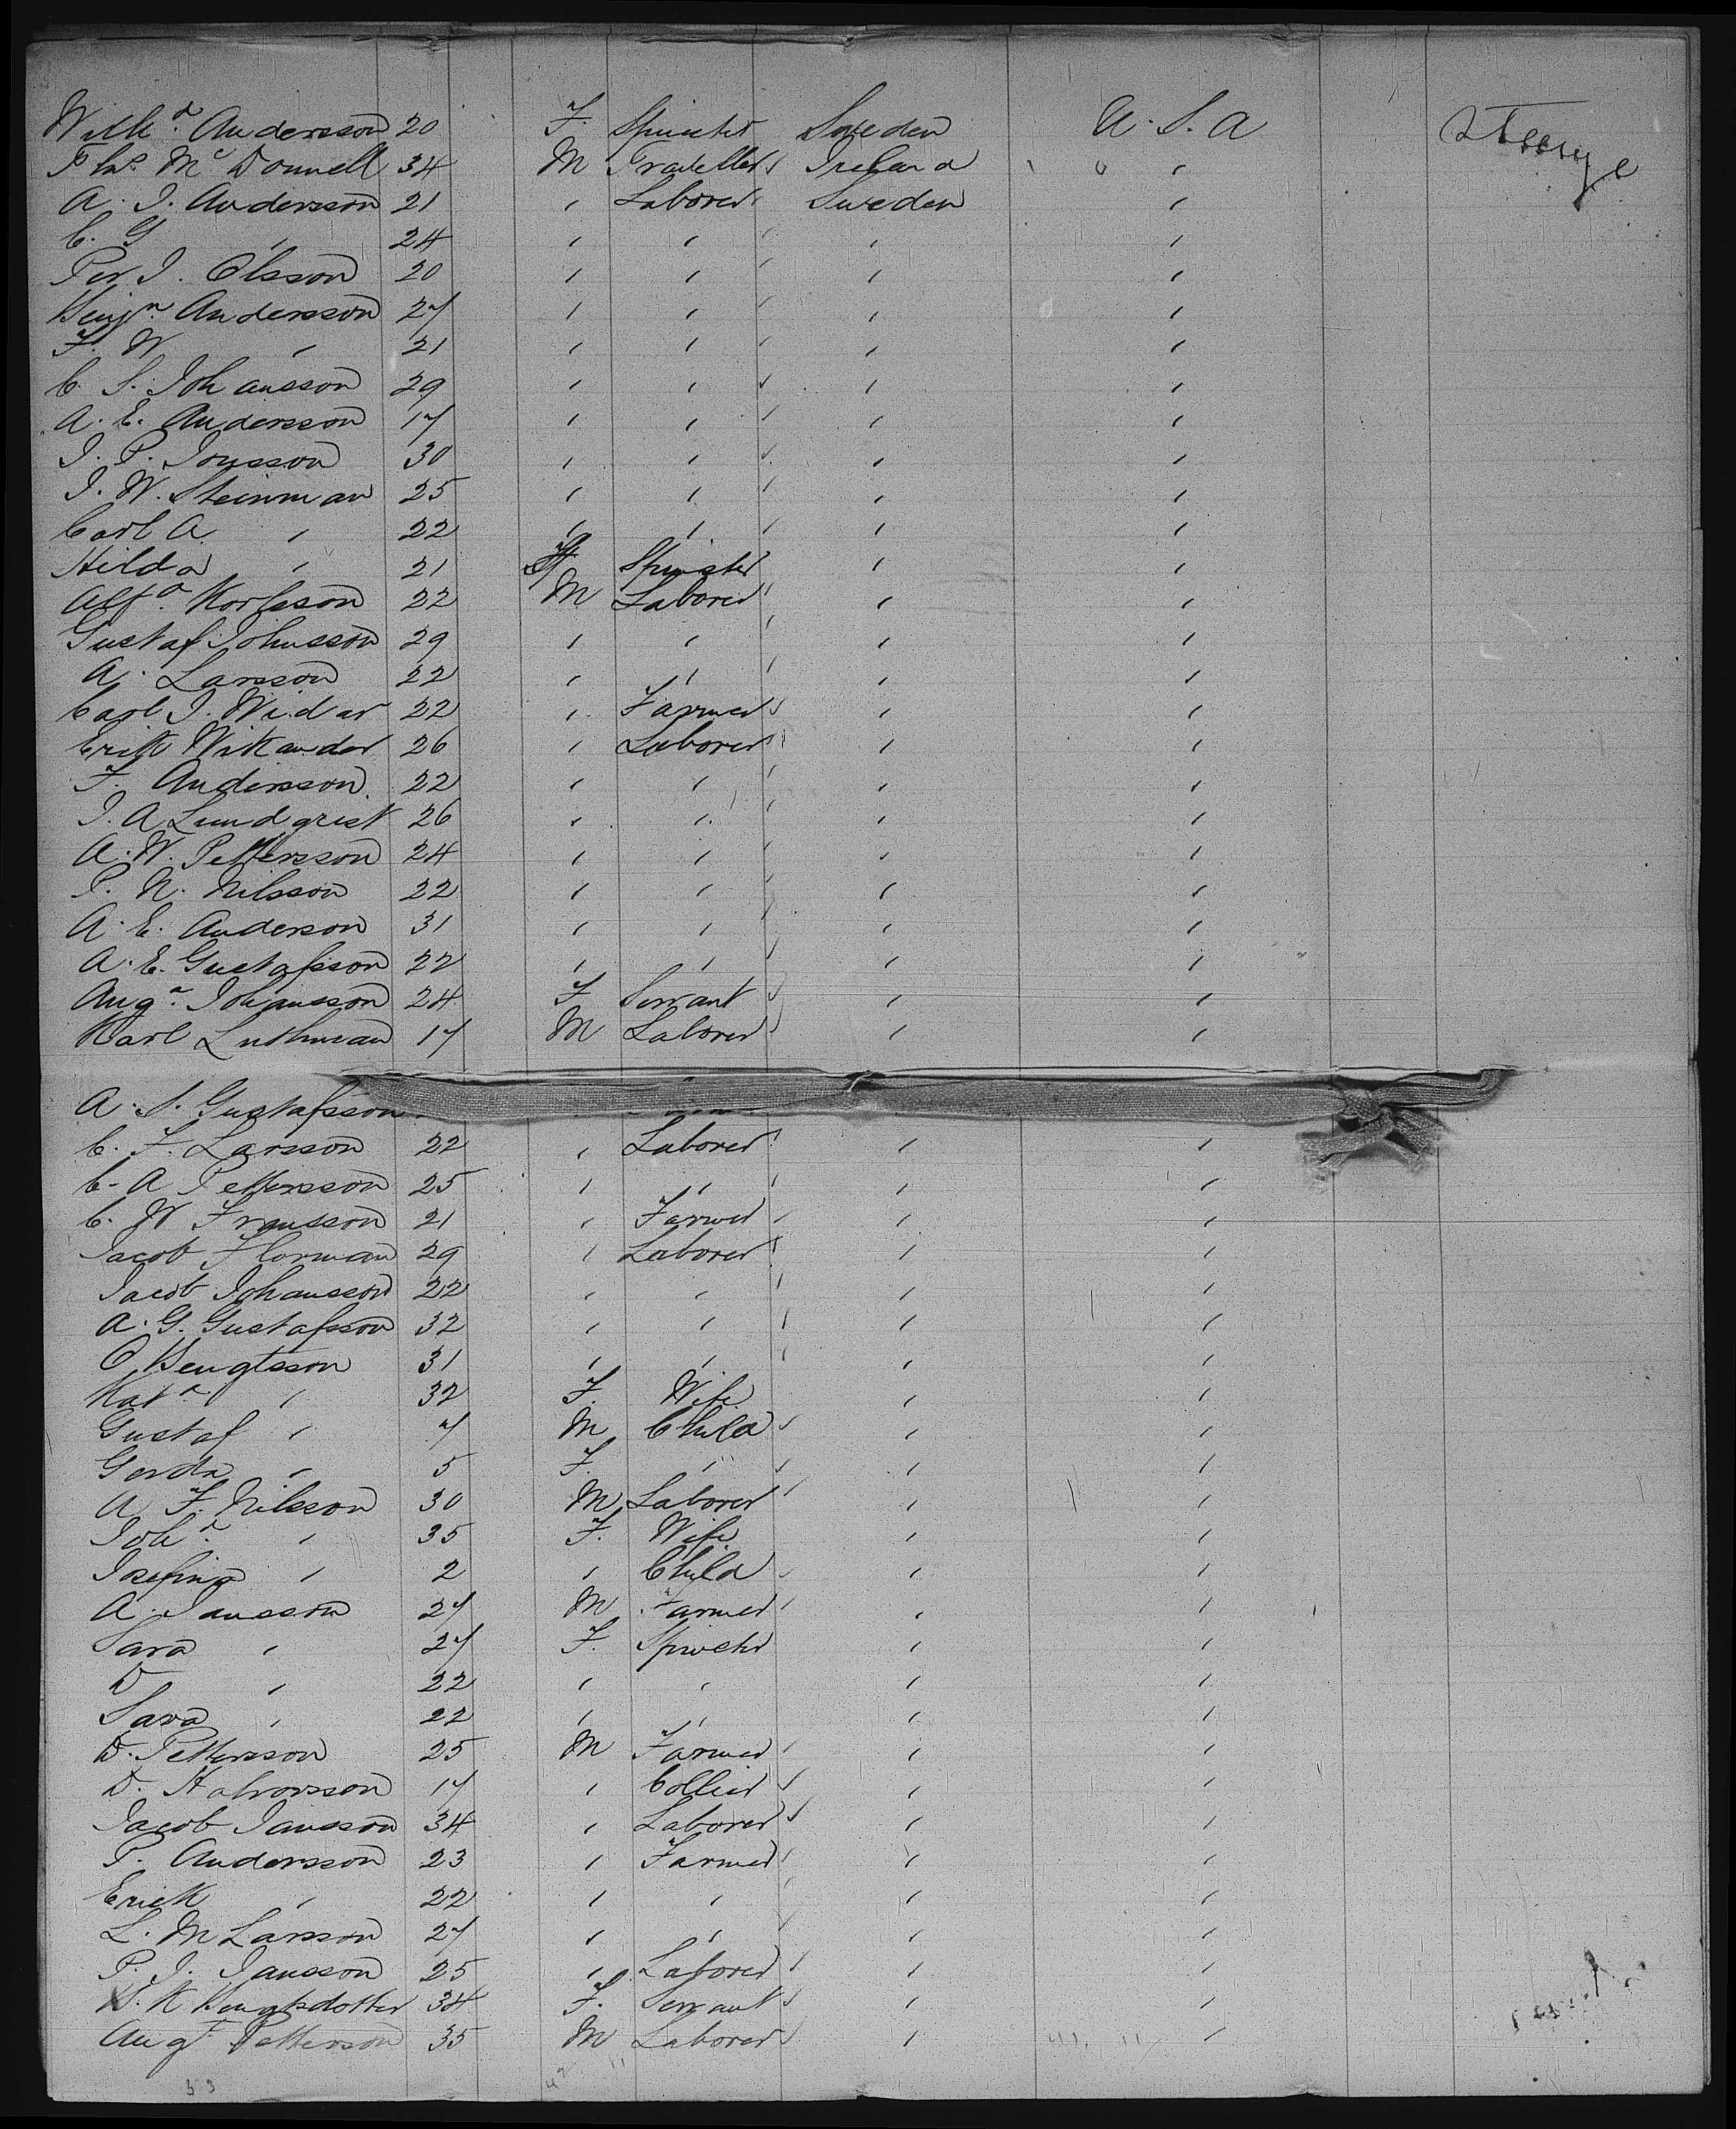 Wilh.a Andersson 20 F. Spinster Sweden U. S. A Steerage
Thos. Mc Donnell 34 M Traveller Ireland " "
A. J. Andersson 21 " Laborer Sweden "
C. G " 24 " " " "
Per J. Olsson 20 " " " "
Benj.n Andersson 27 " " " "
F. W " 21 " " " "
C. S. Johansson 29 " " " "
A. E. Andersson 17 " " " "
J. P. Jonsson 30 " " " "
J. W. Steinman 25 " " " "
Carl A. " 22 " " " "
Hilda " 21 F Spinster " "
Alf.a Karlsson 22 M Laborer " "
Gustaf Johnsson 29 " " " "
A. Larsson 22 " " " "
Carl J. Widar 22 " Farmer " "
Erik Wikander 26 " Laborer " "
F. Andersson 22 " " " "
J. A Lundqrist 26 " " " "
A. W. Pettersson 24 " " " "
P. N. Nilsson 22 " " " "
A. E. Anderson 31 " " " "
A. E. Gustafsson 22 " " " "
Aug.a Johansson 24 F Servant " "
Karl Luthman 17 M Laborer " "
A. S. Gustafsson
C. F. Larsson 22 " Laborer " "
C. A Pettersson 25 " " " "
C. W Fransson 21 " Farmer " "
Jacob Florman 29 " Laborer " "
Jacob Johansson 22 " " " "
A. G. Gustafsson 32 " " " "
O Bengtsson 31 " " " "
Kat.a " 32 F. Wife " "
Gustaf " 7 M Child " "
Gerda " 5 F. " " "
A F. Nilsson 30 M Laborer " "
Joh.a " 35 F. Wife " "
Josefina " 2 " Child " "
A. Jansson 27 M Farmer " "
Sara " 27 F. Spinster " "
D " 22 " " " "
Sara " 22 " " " "
D. Pettersson 25 M Farmer " "
D. Halvorsson 17 " Collier " "
Jacob Jansson 34 " Laborer " "
P. Andersson 23 " Farmer " "
Erick " 22 " " " "
L. M Larsson 27 " " " "
P. J. Jansson 25 " Laborer " "
B. K Bengtsdotter 34 F. Servant " "
Aug.t Petterson 35 M Laborer " "